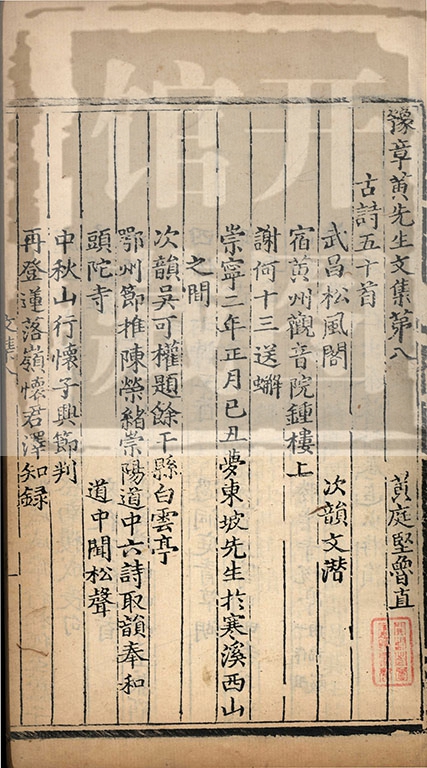 豫章黃先生文集第八　黃庭堅魯直
古詩五十首
武昌松風閣　次韻文潛
宿黃州觀音院鍾樓上
謝何十三送蠏
崇寧二年正月己丑夢東坡先生於寒溪西山
之間
次韻吳可權題餘干縣白雲亭
鄂州節推陳榮緒崇陽道中六詩取韻奉和
頭陀寺　道中聞松聲
中秋山行懷子興節判
再登蓮落嶺懷君澤知録
文集八
开
馆